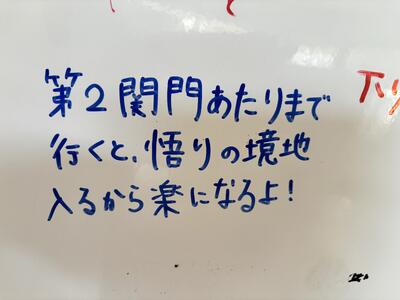 第2関門あたりまで
行くと、悟りの境地
入るから楽になるよ!